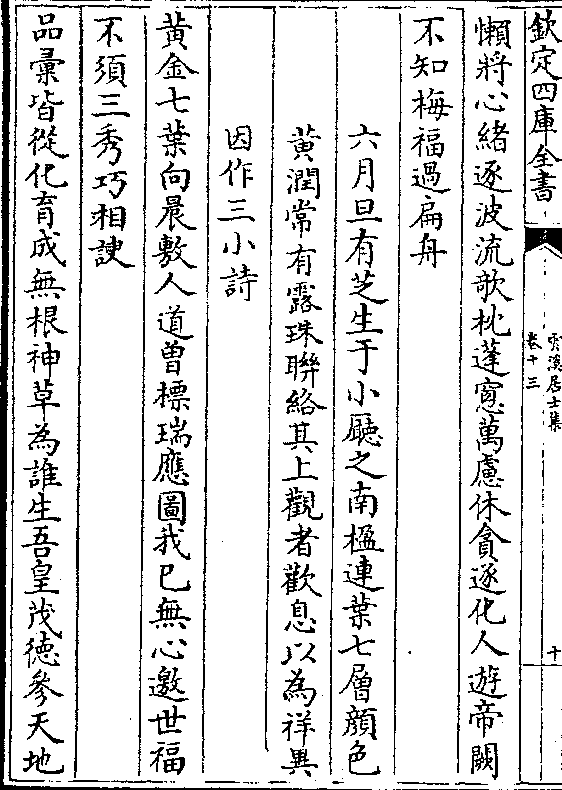 欽定四庫全書
雲溪居士集
卷十三
十
懶將心緒逐波流歌枕蓬窻萬慮休貪逐化人遊帝闕
不知梅福過扁舟
六月旦有芝生于小廳之南楹連葉七層顔色
黃潤常有露珠聯絡其上觀者歡息以為祥異
因作三小詩
黃金七葉向晨敷人道曾標瑞應圖我已無心邀世福
不須三秀巧相諛
品彙皆從化育成無根神草為誰生吾皇茂徳參天地